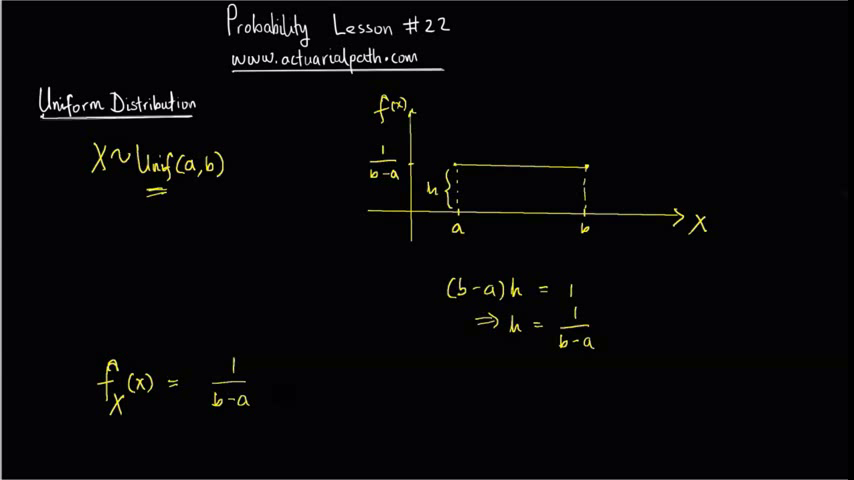 Probability Lesson #22
www.actuarialpath.com
Uniform Distribution
X ~ Unif(a,b)
f(x)
1/(b-a)
h
a
b
X
(b-a)h = 1
⇒ h = 1/(b-a)
f_X(x) = 1/(b-a)